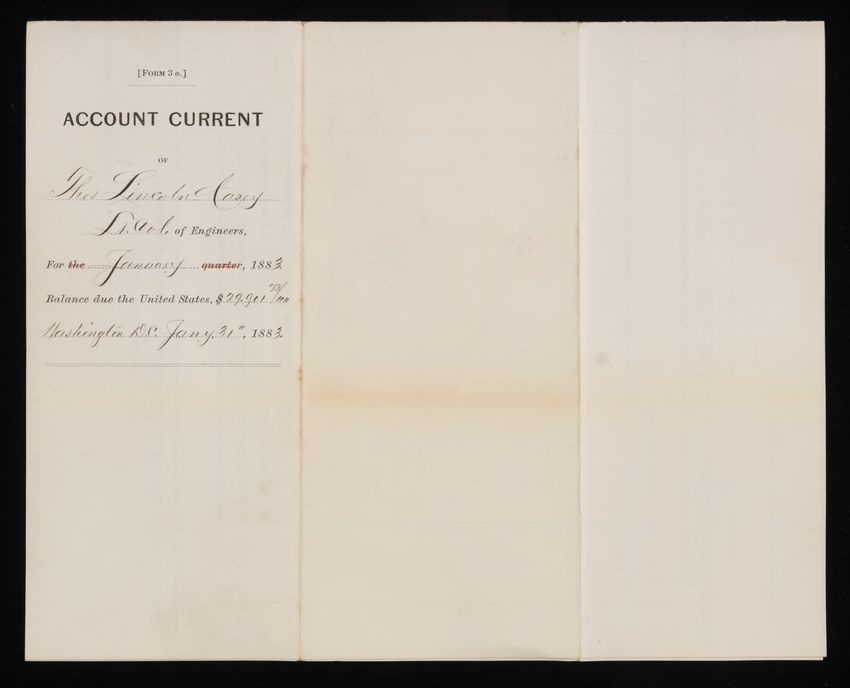 [FORM 3 a.]
ACCOUNT CURRENT
OF
Thos Lincoln Casey
Lt. Col. of Engineers,
For the January quarter, 1883.
Balance due the United States, $29,901 73/100
Washington D.C. Jany. 31", 1883.